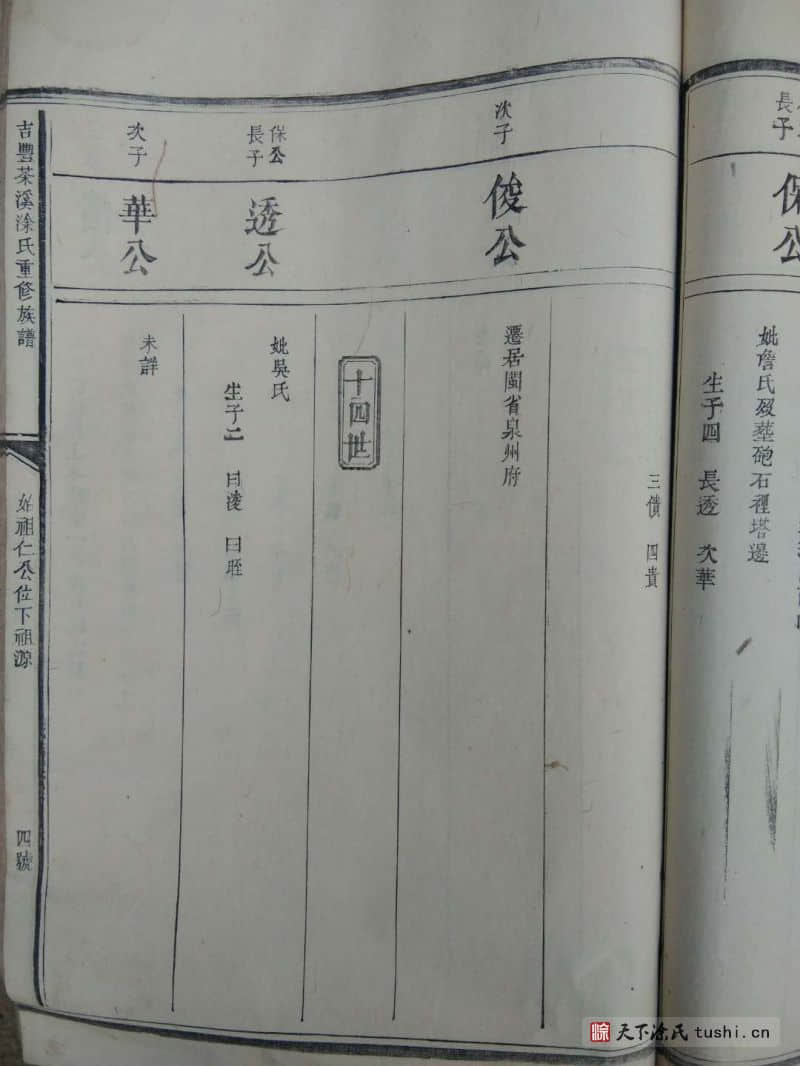 長子
保公
妣詹氏歿塟砲石裡塔邊
生子四 長透 次華
三債 四貴
次子
俊公
遷居閩省泉州府
十四世
保公
長子
透公
妣吳氏
生子二 曰淩 曰旺
次子
華公
未詳
吉豐茶溪涂氏重修族譜
始祖仁公位下祖源
四號
天下涂氏 tushi.cn